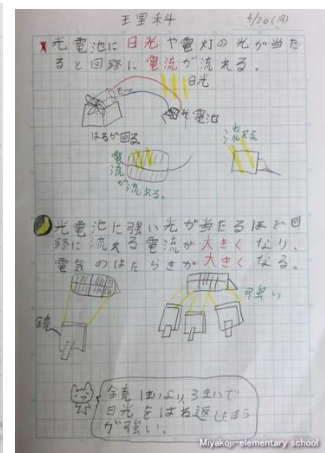 理科
4/20(月)
光電池に日光や電灯の光が当た
ると回路に電流が流れる。
日光
光電池
はねが回る。
電流が流れる。
光電池に強い光が当たるほど回
路に流れる電流が大きくなり、
電気のはたらきが大きくなる。
強い
鏡
鏡1まいより、3まいで
日光をはね返したほう
が強い。
Miyakoji-elementary school